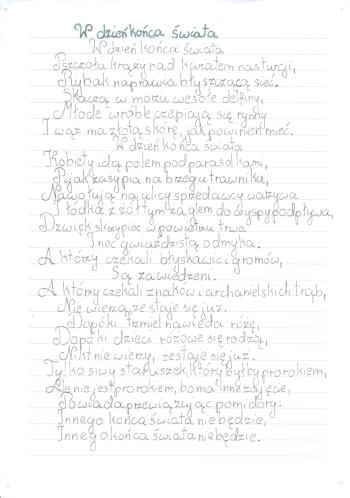 W dzień końca świata
W dzień końca świata
Pszczoła krąży nad kwiatem nasturcji,
Rybak naprawia błyszczącą sieć.
Skaczą w morzu wesołe delfiny,
Młode wróble czepiają się rynny
I wąż ma złotą skórę, jak powinien mieć.
W dzień końca świata
Kobiety idą polem pod parasolkami,
Pijak zasypia na brzegu trawnika,
Nawołują na ulicy sprzedawcy warzywa
I łódka z żółtym żaglem do wyspy podpływa,
Dźwięk skrzypiec w powietrzu trwa
I noc gwiaździstą odmyka.
A którzy czekali błyskawic i gromów,
Są zawiedzeni.
A którzy czekali znaków i archanielskich trąb,
Nie wierzą, że staje się już.
Dopóki trzmiel nawiedza różę,
Dopóki dzieci różowe się rodzą,
Nikt nie wierzy, że staje się już.
Tylko siwy staruszek, który byłby prorokiem,
Ale nie jest prorokiem, bo ma inne zajęcie,
Powiada przewiązując pomidory:
Innego końca świata nie będzie,
Innego końca świata nie będzie.